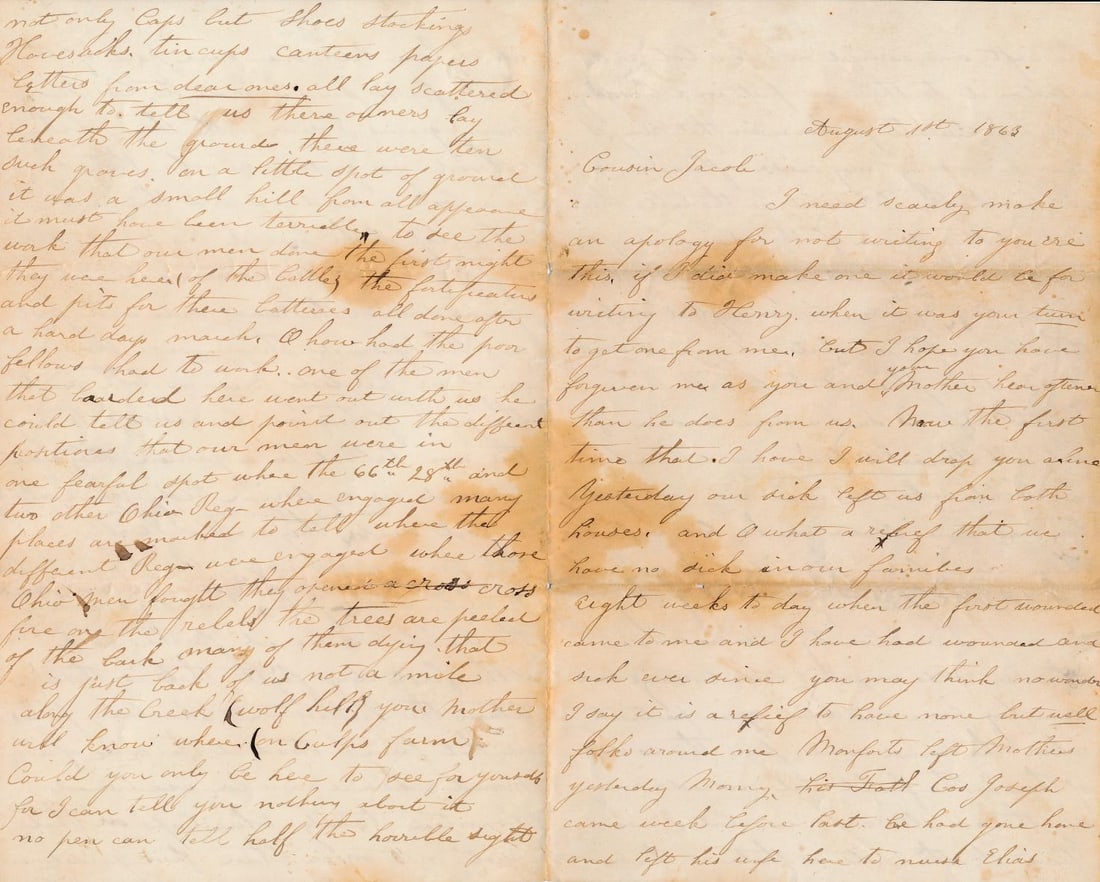 not only Caps but Shoes stockings
Haversacks. tin cups canteens papers
letters from dear ones. all lay scattered
enough to tell us there owners lay
beneath the ground there were ten
such graves on a little spot of ground
it was a small hill from all appearance
it must have been terrible, to see the
work that our men done the first night
they were here (of the battle) the fortifications
and pits for there batteries all done after
a hard days march. O how had the poor
fellows had to work.. one of the men
that boarded here went out with us he
could tell us and point out the different
positions that our men were in
one fearful spot where the 66th 28th and
two other Ohio Reg- where engaged many
places are marked to tell where the
different Reg- were engaged where those
Ohio men fought they opened a cross cross
fire on the rebels the trees are peeled
of the bark many of them dying that
is just back of us not a mile
along the Creek (wolf hill) your Mother
will know where (on Culps farm)
Could you only be here to see for yourself
for I can tell you nothing about it
no pen can tell half the horrible sight
August 1st 1863
Cousin Jacob
I need scarely make
an apology for not writing to you ere
this, if I did make one it would be for
writing to Henry. when it was your turn
to get one from me. but I hope you have
forgiven me as you and your Mother hear oftener
than he does from us. Now the first
time that I have I will drop you a line
Yesterday our sick left us from both
houses. and O what a relief that we
have no sick in our families
eight weeks to day when the first wounded
came to me and I have had wounded and
sick ever since you may think no wonder
I say it is a relief to have none but well
folks around me Monforts left Mothers
yesterday Morny, his Fath Cos Joseph
came week before last. he had gone home
and left his wife here to nurse Elias